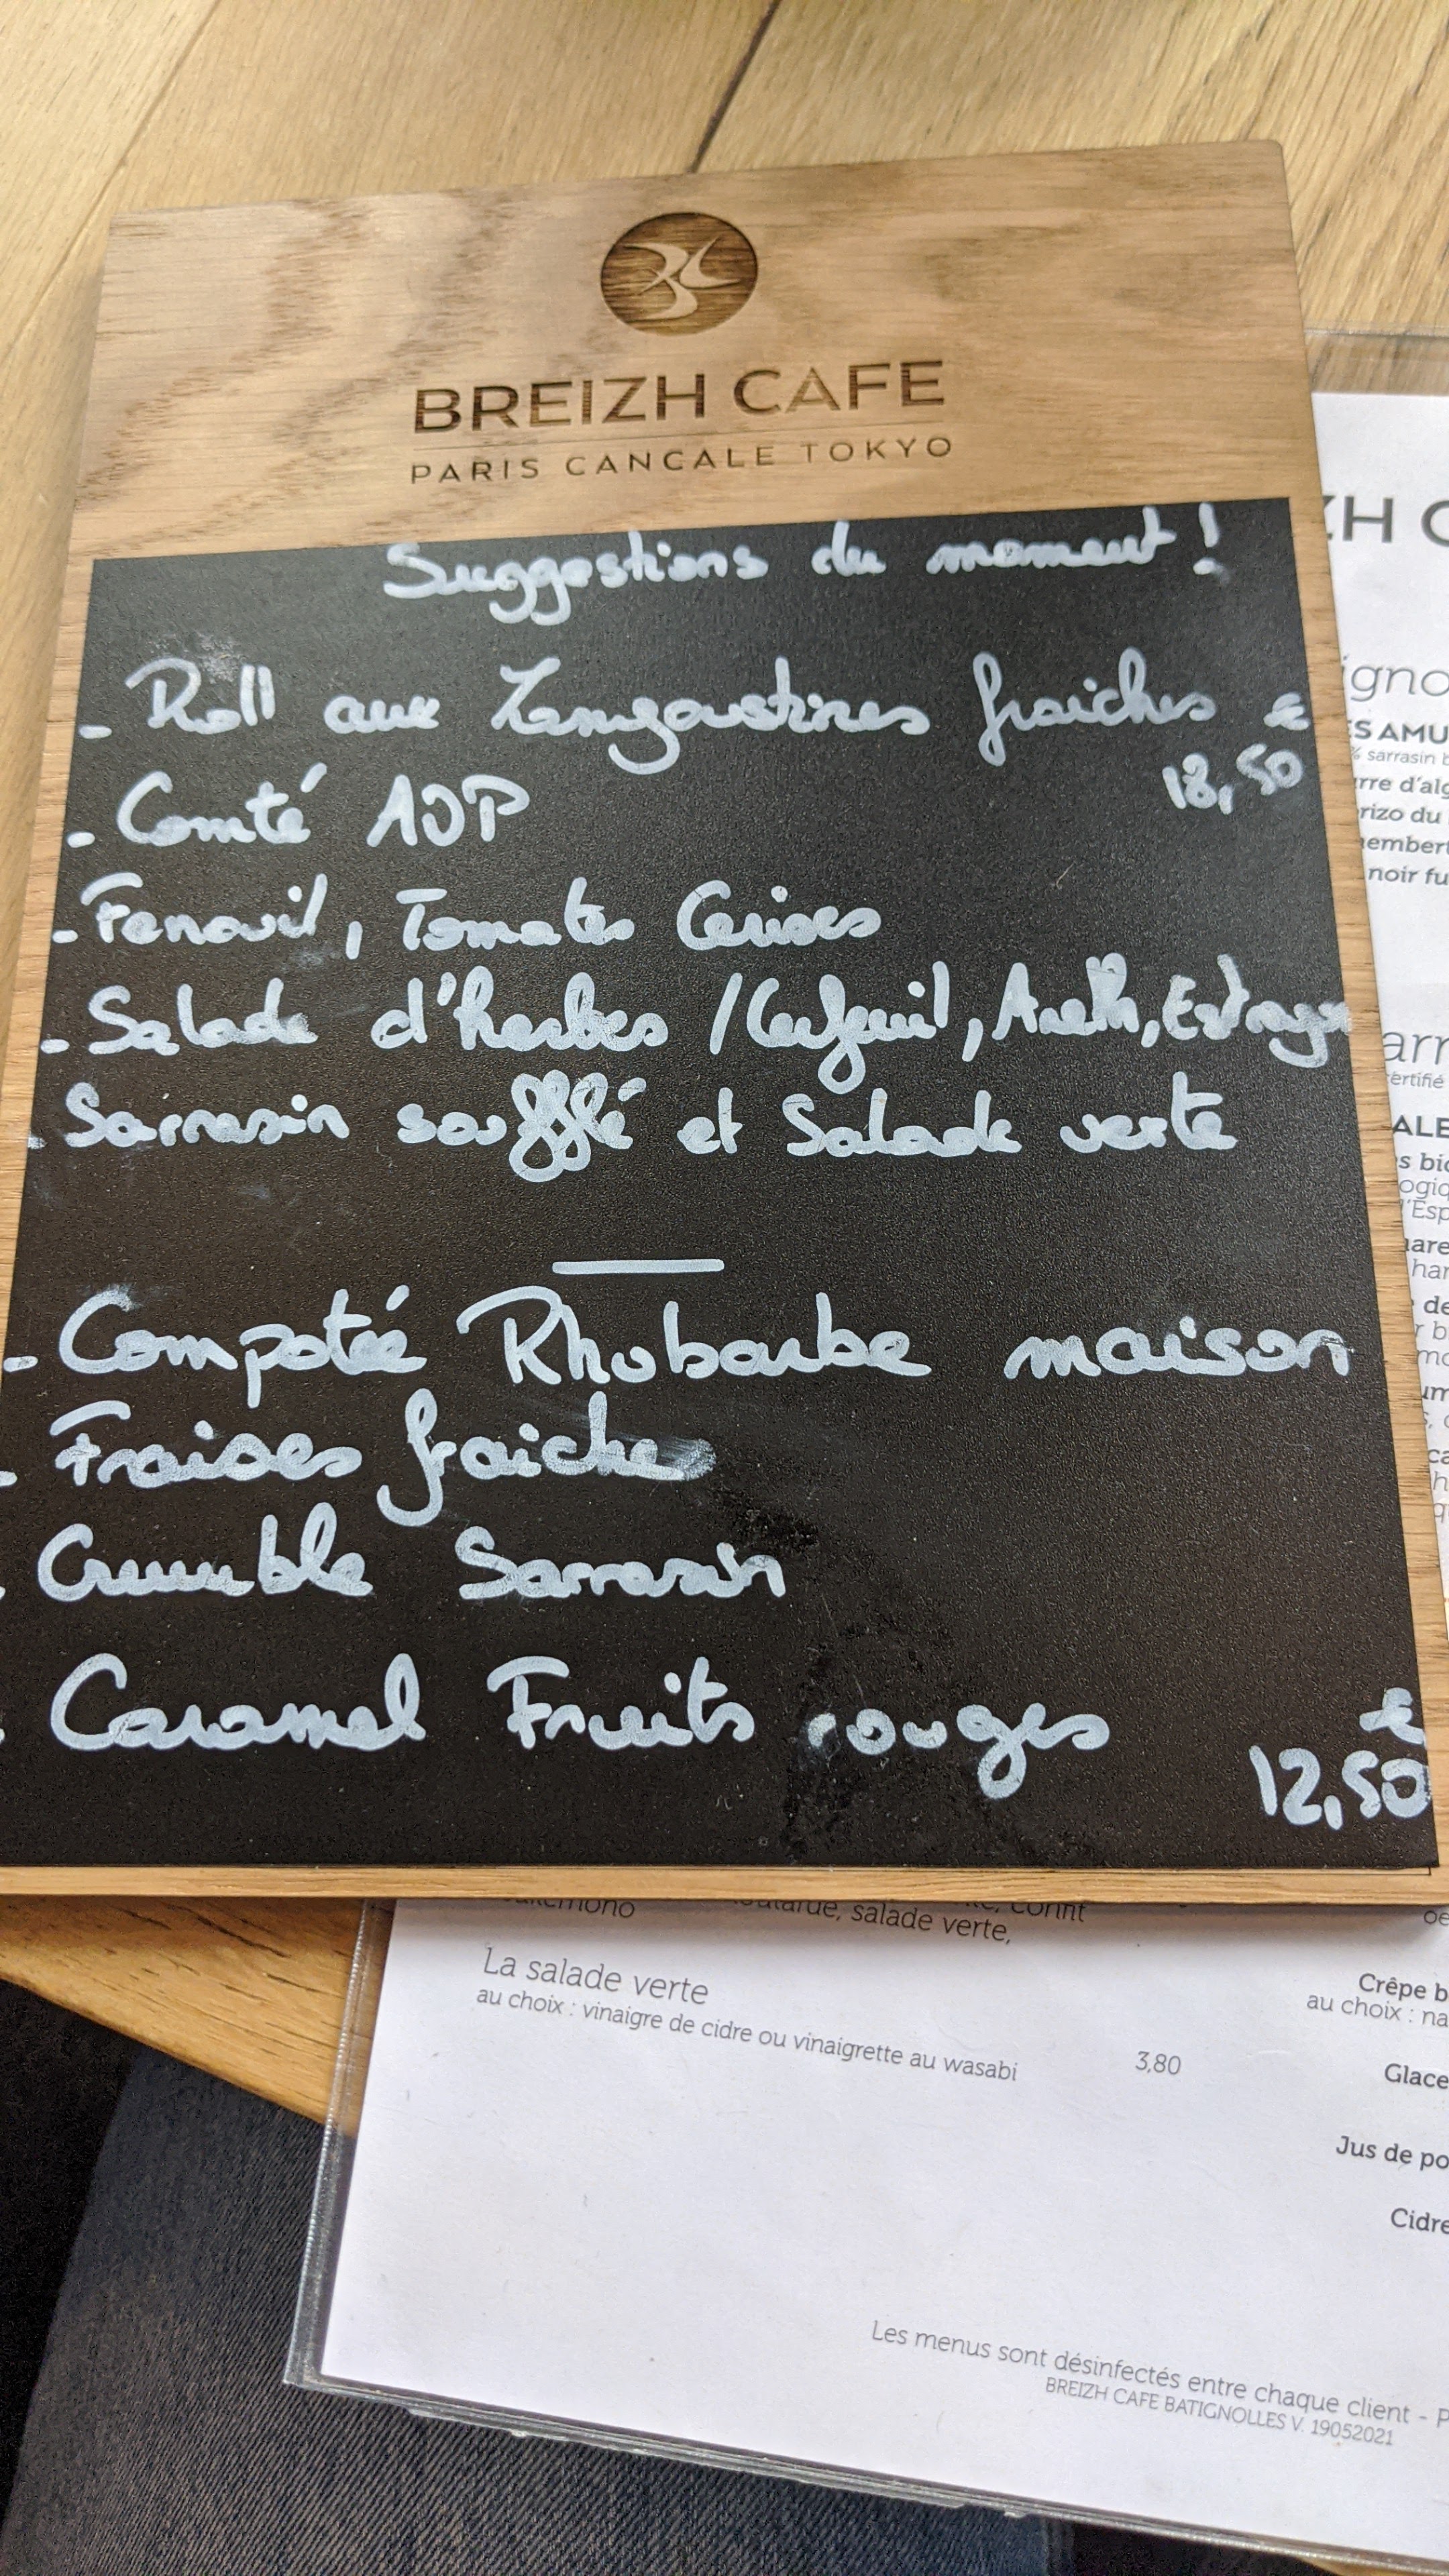 BREIZH CAFE
PARIS CANCALE TOKYO
Suggestions du moment !
- Roll aux Langoustines fraiches €
18,50
- Comté AOP
- Fenouil, Tomates Cerises
- Salade d'herbes / Cerfeuil, Aneth, Estragon
- Sarrasin soufflé et Salade verte
- Compotée Rhubarbe maison
- Fraises fraiche
- Crumble Sarrasin
- Caramel Fruits rouges €
12,50
ZH C
igno
ES AMU
% sarrasin b
rre d'alg
rizo du
embert
noir fu
arr
certifié
ALE
s bio
ogiq
l'Esp
hare
har
de
r b
mo
um
ca
outarde, salade verte,
confit
La salade verte
au choix : vinaigre de cidre ou vinaigrette au wasabi 3,80
Crêpe b
au choix : na
Glace
Jus de po
Cidre
Les menus sont désinfectés entre chaque client - P
BREIZH CAFE BATIGNOLLES V. 19052021